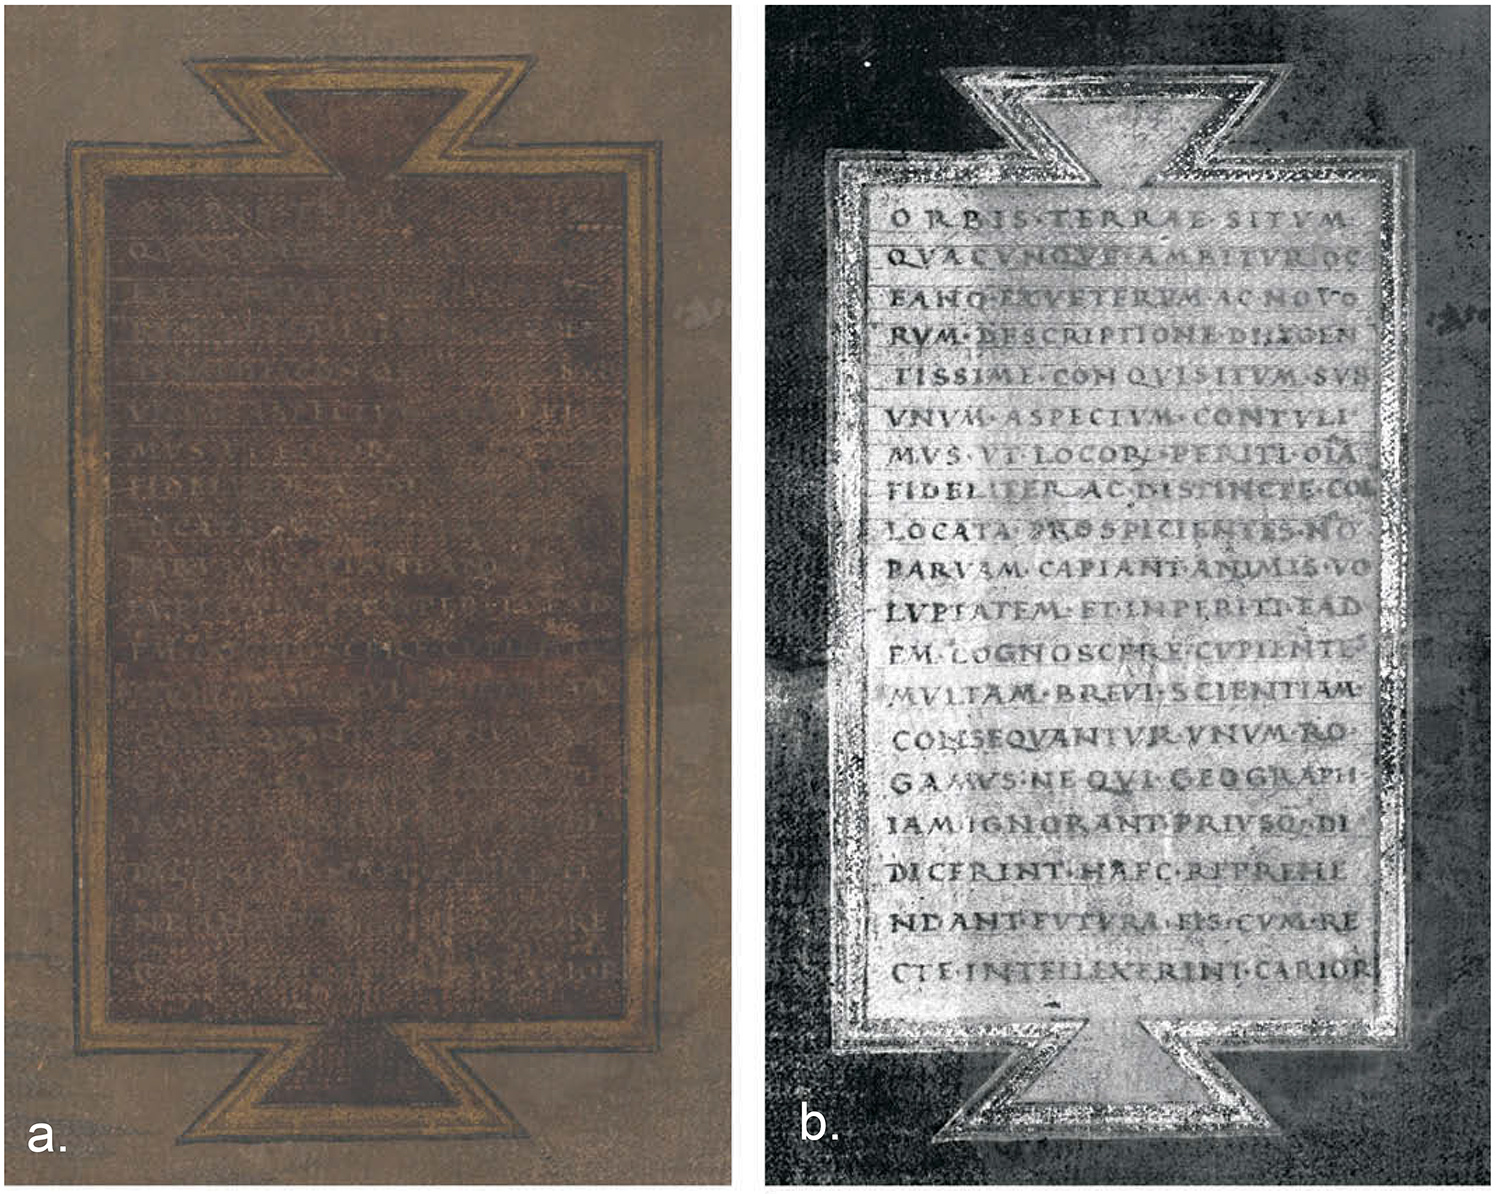 a.
b.
ORBIS·TERRAE·SITVM·
QVACVNQVE·AMBITVR·OC
EANO·EX·VETERVM·AC NOVO
RVM·DESCRIPTIONE·DILIGEN
TISSIME·CONQVISITVM·SVB
VNVM·ASPECTVM·CONTVLI
MVS·VT·LOCOꝜ·PERITI·OĪA
FIDELITER·AC·DISTINCTE·COL
LOCATA·PROSPICIENTES·NŌ
PARVAM·CAPIANT·ANIMIS·VO
LVPTATEM·ET·INPERITI·EAD
EM·COGNOSCERE·CVPIENTE
MVLTAM·BREVI·SCIENTIAM·
CONSEQVANTVR·VNVM·RO·
GAMVS·NE·QVI·GEOGRAPH
IAM·IGNORANT·PRIVSQ̄·DI
DICERINT·HAEC·REPREHE
NDANT·FVTVRA·EIS·CVM·RE
CTE·INTELLEXERINT·CARIOR